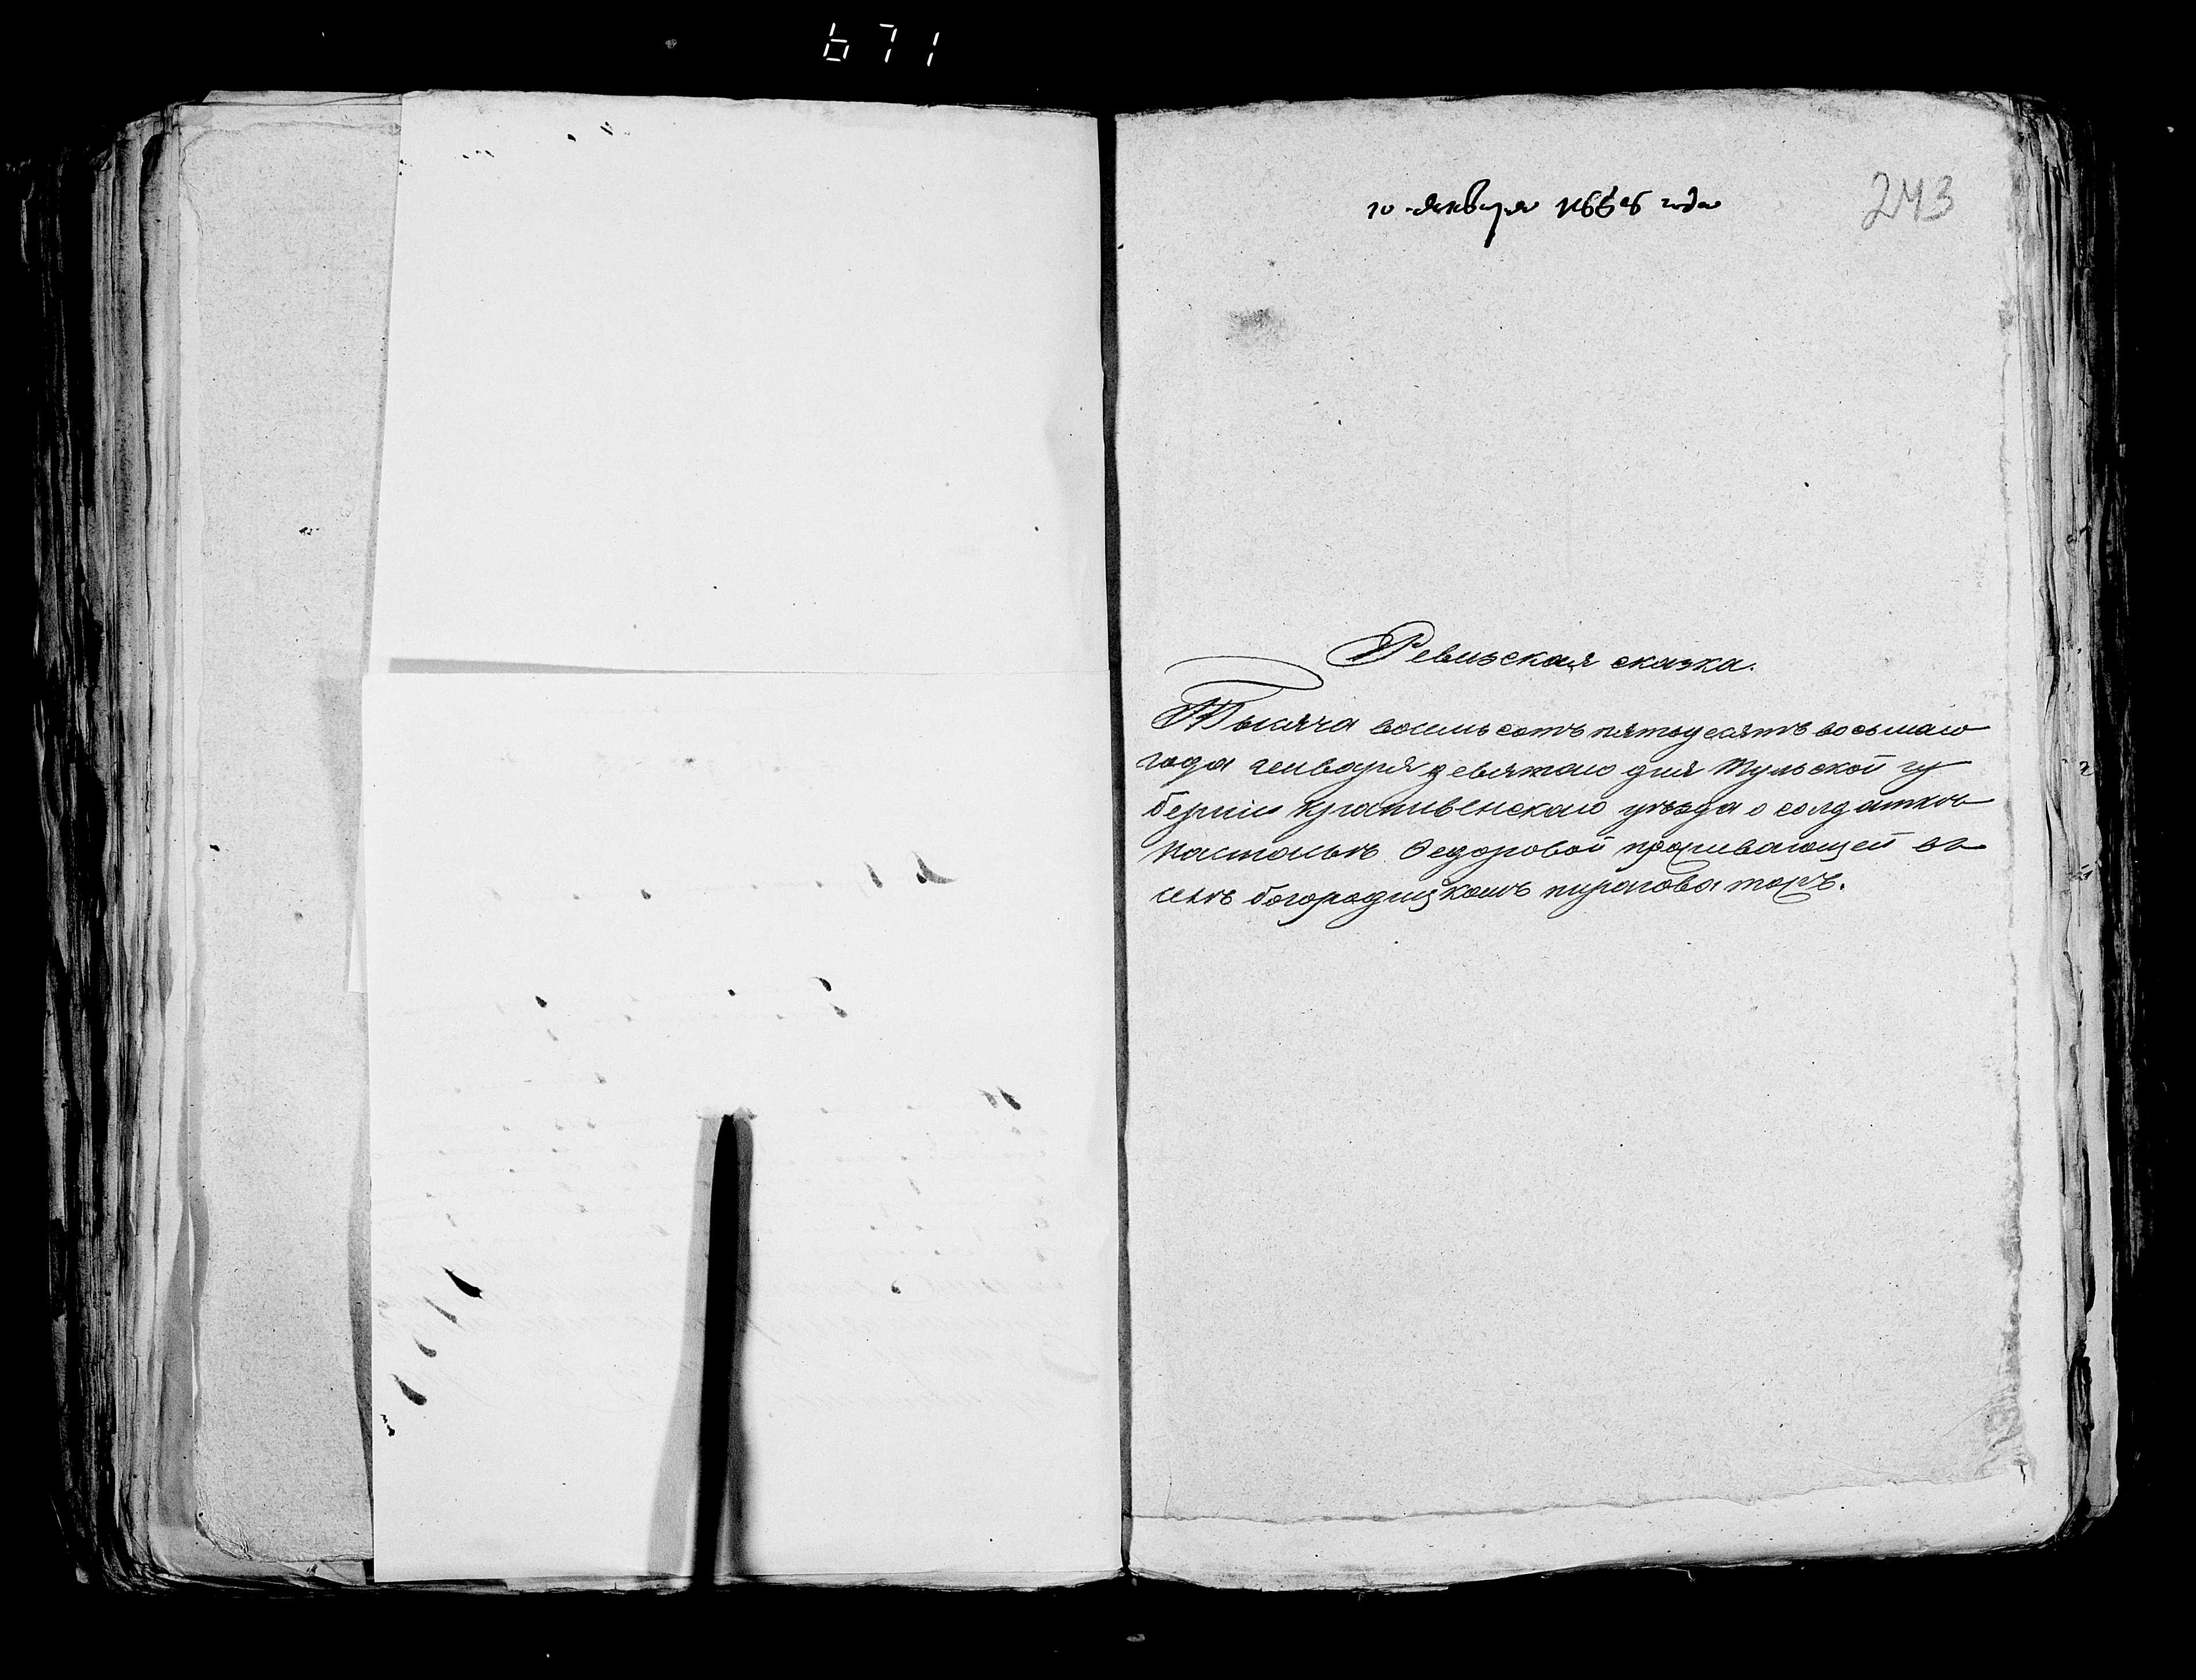 671
10 января 1858 года
243
Ревизская сказка.
Тысяча восемь сотъ пятьдесятъ восьмаго
года генваря девятаго дня Тульской гу
берніи Крапивенскаго уѣзда о солдаткѣ
Настасьѣ Федоровой проживающей въ
селѣ богородицкомъ пироговѣ тожъ.